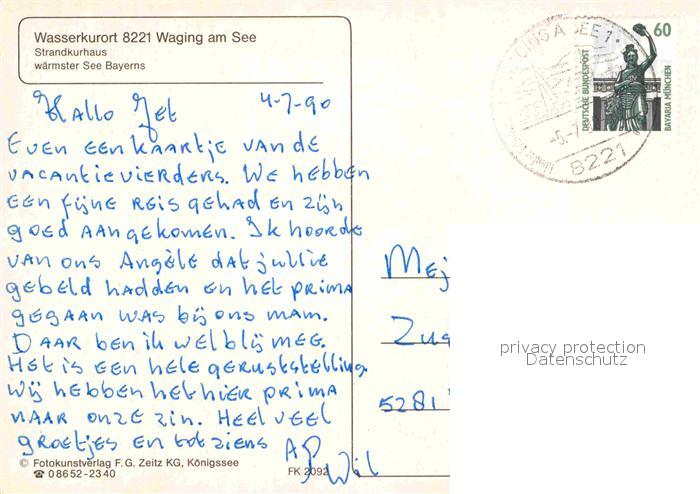 Wasserkurort 8221 Waging am See
Strandkurhaus
wärmster See Bayerns
Hallo Jet 4-7-90
EVEN EEN KAARTJE VAN DE
VACANTIEVIERDERS. WE HEBBEN
EEN FIJNE REIS GEHAD EN ZIJN
GOED AANGEKOMEN. IK HOORDE
VAN ONS ANGÈLE DAT JULLIE
GEBELD HADDEN EN HET PRIMA
GEGAAN WAS BIJ ONS MAM.
DAAR BEN IK WEL BLIJ MEE.
HET IS EEN HELE GERUSTSTELLING.
WIJ HEBBEN HET HIER PRIMA
NAAR ONZE ZIN. HEEL VEEL
GROETJES EN TOT ZIENS
Wil
© Fotokunstverlag F. G. Zeitz KG, Königssee
☎ 0 86 52-23 40 FK 2092
60
DEUTSCHE BUNDESPOST
BAVARIA MÜNCHEN
-5.-7
8221
Mej
Zu
5281
privacy protection
Datenschutz